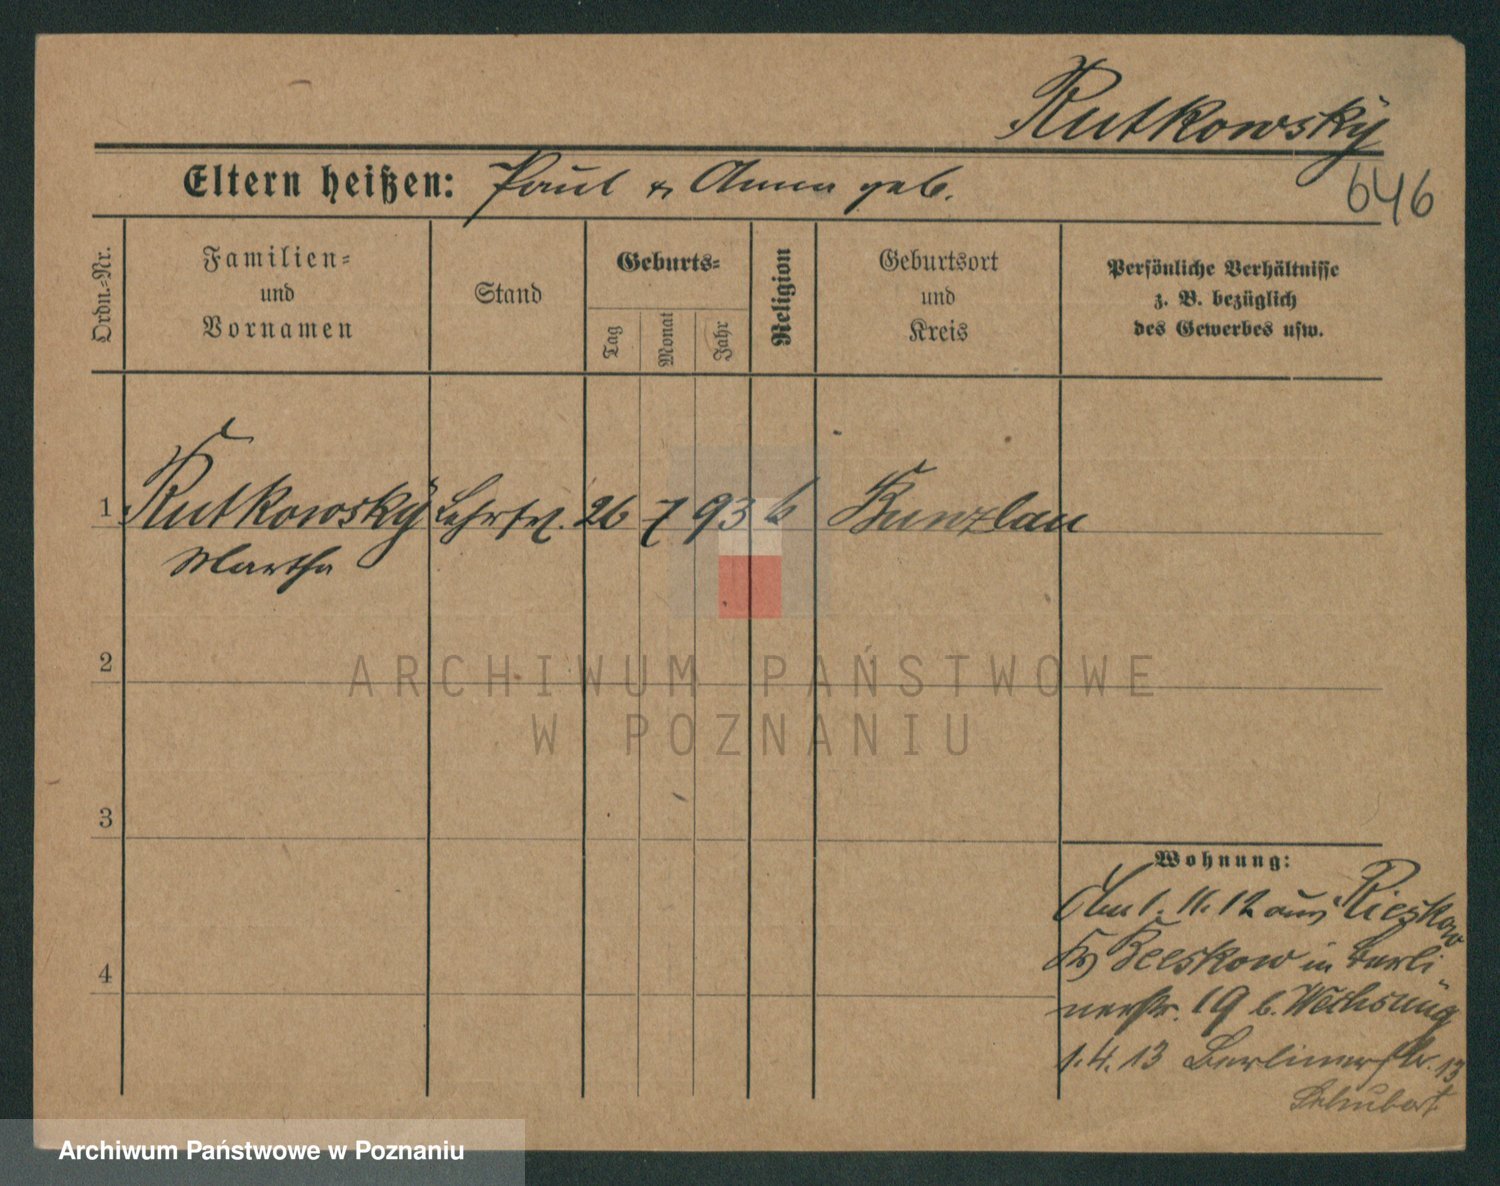 Rutkowsky
646
Eltern heißen: Paul & Anna geb.
Ordn.-Nr.
Familien-
und
Vornamen
Stand
Geburts-
Tag
Monat
Jahr
Religion
Geburtsort
und
Kreis
Persönliche Verhältnisse
z. B. bezüglich
des Gewerbes usw.
1 Rutkowsky 26 7 93 Bunzlau
Martha
2
3
4
Wohnung:
1. 11. 12 aus
Beeskow in Berli-
nerstr. 19 b.
1. 4. 13 Berlinerstr. 13
Schubert
ARCHIWUM PAŃSTWOWE
W POZNANIU
Archiwum Państwowe w Poznaniu